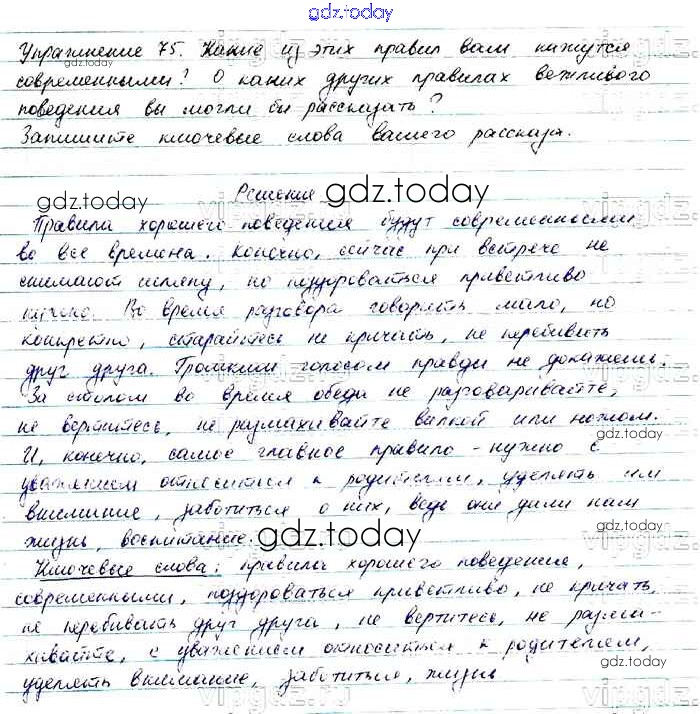 gdz.today
Упражнение 75. Какие из этих правил вам кажутся
современными? О каких других правилах вежливого
поведения вы могли бы рассказать?
Запишите ключевые слова вашего рассказа.
Решение
Правила хорошего поведения будут современными
во все времена. Конечно, сейчас при встрече не
снимают шляпу, но поздороваться приветливо
нужно. Во время разговора говорить мало, но
конкретно, старайтесь не кричать, не перебивать
друг друга. Громким голосом правды не докажешь.
За столом во время обеда не разговаривайте,
не вертитесь, не размахивайте вилкой или ножом.
И, конечно, самое главное правило - нужно с
уважением относиться к родителям, уделять им
внимание, заботиться о них, ведь они дали нам
жизнь, воспитание.
Ключевые слова: правила хорошего поведения,
современными, поздороваться приветливо, не кричать,
не перебивать друг друга, не вертитесь, не разма-
хивайте, с уважением относиться к родителям,
уделять внимание, заботиться, жизнь